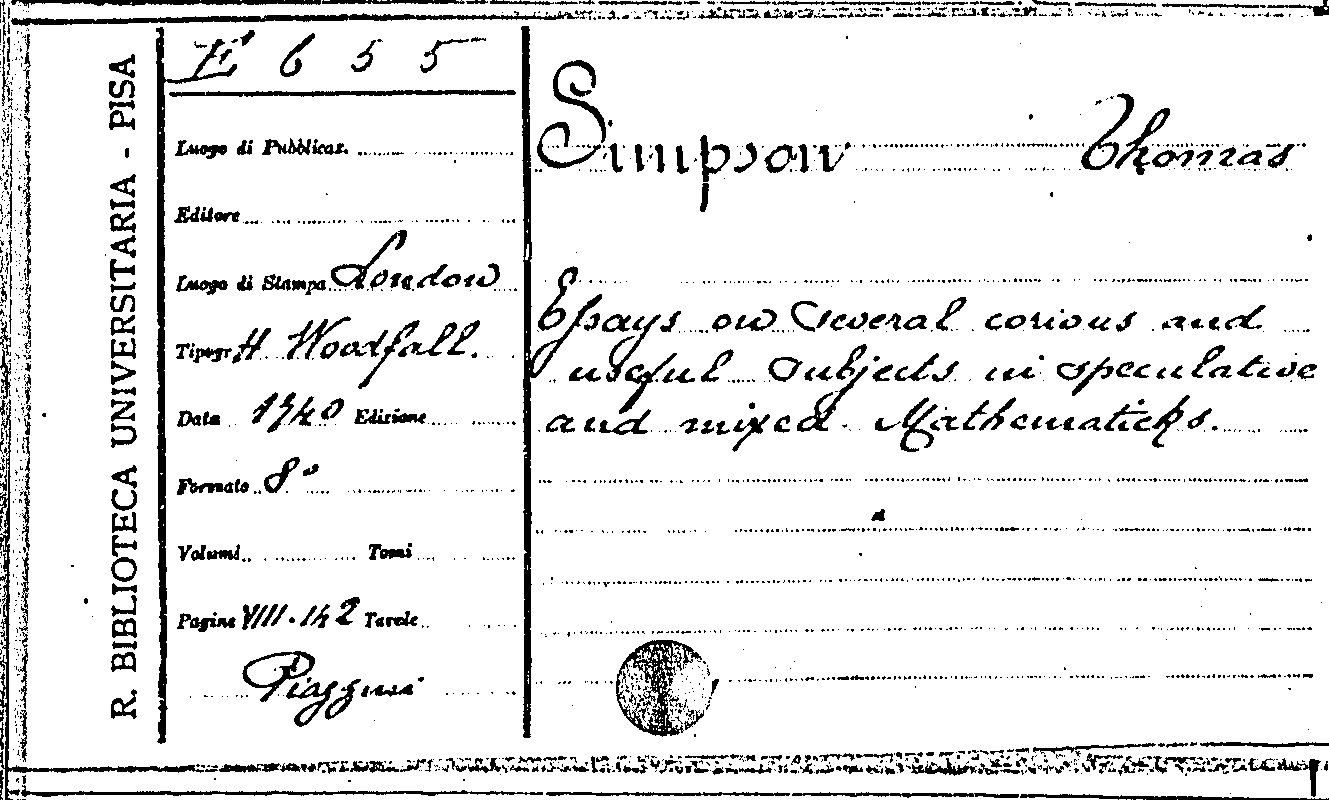 R. BIBLIOTECA UNIVERSITARIA - PISA
6 5 5
Luogo di Pubblicaz.
Editore
Luogo di Stampa London
Tipogr. H Woodfall.
Data 1740 Edizione
Formato 8°
Volumi Tomi
Pagine VIII. 142 Tavole
Simpson Thomas
Essays on Several corious and
useful Subjects in speculative
and mixed Mathematicks.